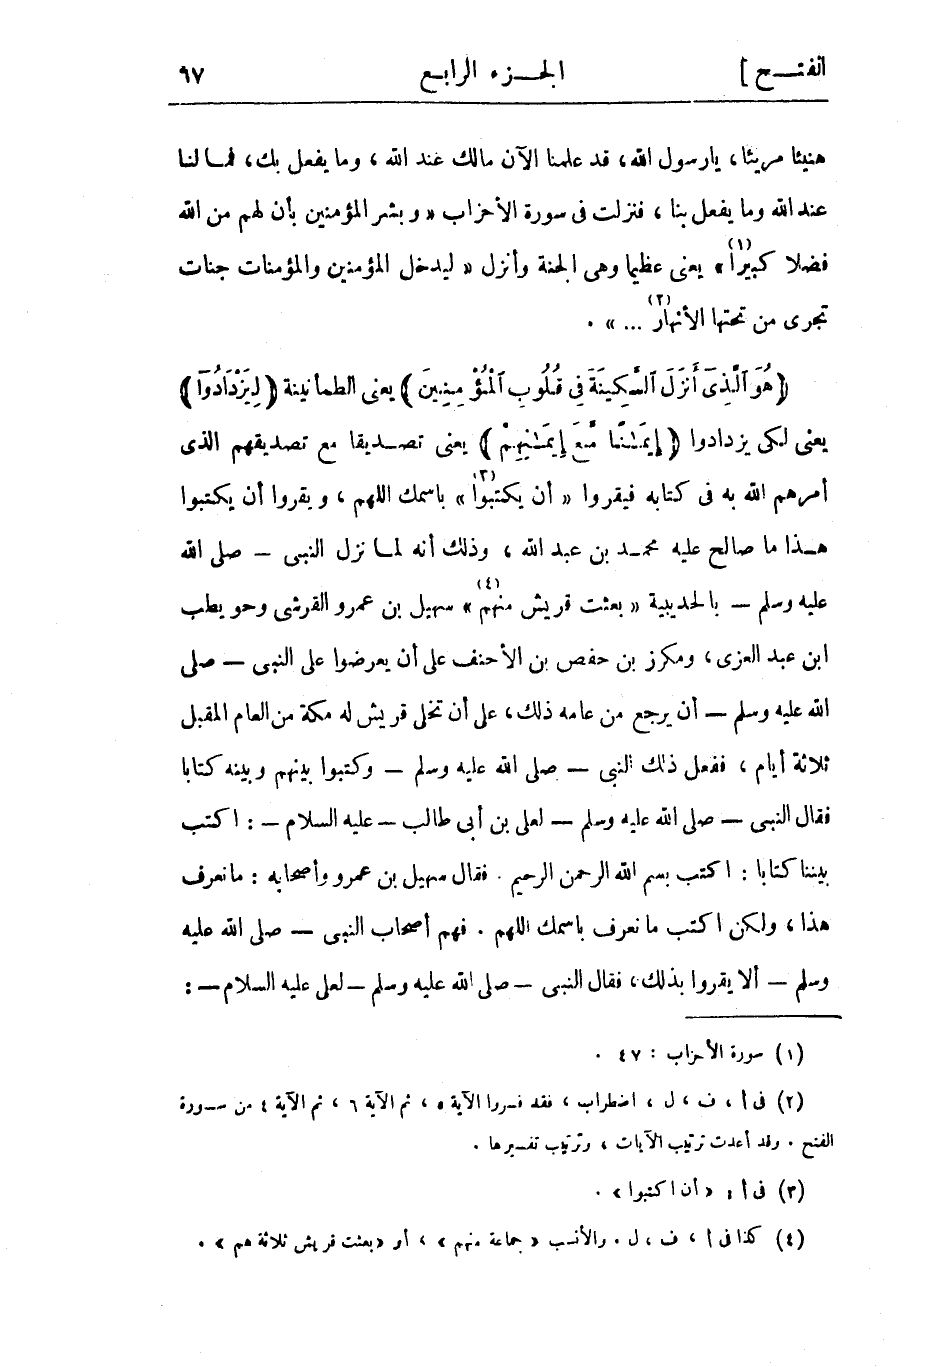 الفتح ] الجزء الرابع ٩٧
هنيئا مريئا، يارسول الله، قد علمنا الآن مالك عند الله، وما يفعل بك، فما لنا
عند الله وما يفعل بنا، فنزلت فى سورة الأحزاب « وبشر المؤمنين بأن لهم من الله
فضلا كبيرا(١)» يعنى عظيما وهى الجنة وأنزل « ليدخل المؤمنين والمؤمنات جنات
تجرى من تحتها الأنهار(٢) ... » .
﴿هُوَ ٱلَّذِىٓ أَنزَلَ ٱلسَّكِينَةَ فِى قُلُوبِ ٱلْمُؤْمِنِينَ﴾ يعنى الطمأنينة ﴿لِيَزْدَادُوٓا﴾
يعنى لكى يزدادوا ﴿إِيمَٰنًا مَّعَ إِيمَٰنِهِمْ﴾ يعنى تصديقا مع تصديقهم الذى
أمرهم الله به فى كتابه فيقروا « أن يكتبوا(٣)» باسمك اللهم، ويقروا أن يكتبوا
هذا ما صالح عليه محمد بن عبد الله، وذلك أنه لما نزل النبى — صلى الله
عليه وسلم — بالحديبية « بعثت قريش منهم(٤)» سهيل بن عمرو القرشى وحويطب
ابن عبد العزى، ومكرز بن حفص بن الأحنف على أن يعرضوا على النبى — صلى
الله عليه وسلم — أن يرجع من عامه ذلك، على أن تخلى قريش له مكة من العام المقبل
ثلاثة أيام، ففعل ذلك النبى — صلى الله عليه وسلم — وكتبوا بينهم وبينه كتابا
فقال النبى — صلى الله عليه وسلم — لعلى بن أبى طالب — عليه السلام — : اكتب
بيننا كتابا : اكتب بسم الله الرحمن الرحيم . فقال سهيل بن عمرو وأصحابه : ما نعرف
هذا، ولكن اكتب ما نعرف باسمك اللهم . فهم أصحاب النبى — صلى الله عليه
وسلم — ألا يقروا بذلك، فقال النبى — صلى الله عليه وسلم — لعلى عليه السلام — :
(١) سورة الأحزاب : ٤٧ .
(٢) فى أ، ف، ل، اضطراب، فقد فسروا الآية ٥، ثم الآية ٦، ثم الآية ٤ من سورة
الفتح . وقد أعدت ترتيب الآيات، وترتيب تفسيرها .
(٣) فى أ : « أن اكتبوا» .
(٤) كذا فى أ، ف، ل . والأنسب « جماعة منهم »، أو «بعثت قريش ثلاثة هم » .